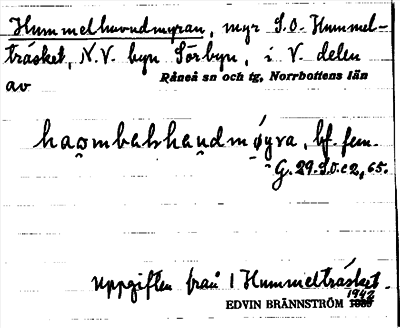 Hummelhuvudmyran, myr S.O. Hummel-
träsket, N.V. byn Sörbyn, i V. delen
av Råneå sn och tg, Norrbottens län
haombalshaudmøyra, bf. fem.
G. 29.S.O.c2, 65.
Uppgiften från 1 Hummelträsket.
1942
EDVIN BRÄNNSTRÖM